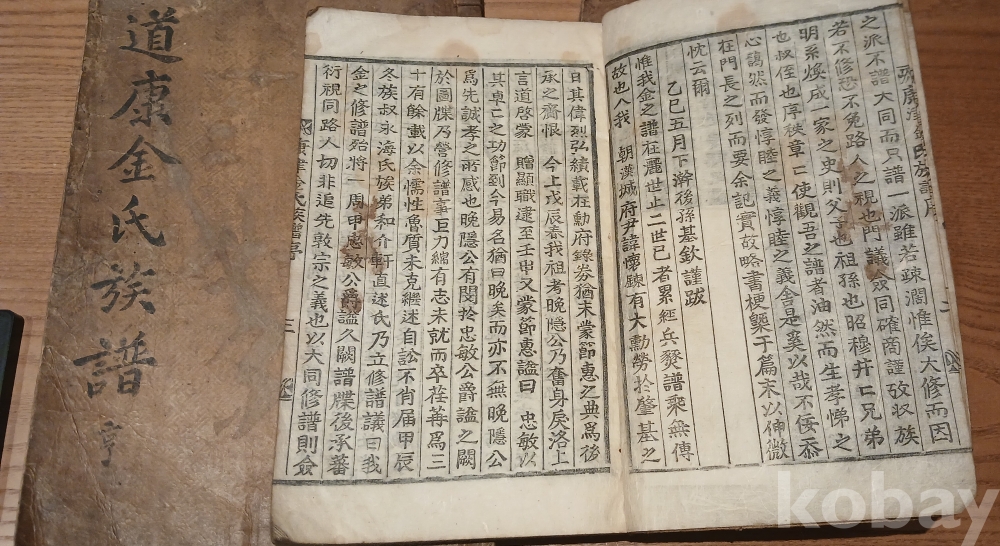 道康金氏族譜
亨
二
之派不譜大同而只譜一派雖若疎濶惟俟大修而因
若不修恐不免路人之視也門議僉同確商謹攷收族
明系煥成一家之史則父子也祖孫也昭穆井〻兄弟
也叔侄也序秩章〻使觀吾之譜者油然而生孝悌之
心藹然而發惇睦之義惇睦之義舍是奚以哉不佞忝
在門長之列而要余記實故略書梗槩于篇末以伸微
忱云爾
乙巳五月下澣後孫基欽謹跋
惟我金之譜在麗世止二世已者累經兵燹譜乘無傳
故也入我 朝漢城府尹諱懷鍊有大勳勞於肇基之
日其偉烈弘績載在勳府錄券猶未蒙節惠之典爲後
承之齎恨 今上戊辰春我祖考晩隱公乃奮身戾洛上
言道啓蒙 贈顯職逮至壬申又蒙節惠謚曰 忠敏以
其卓〻之功節到今易名猶曰晩矣而亦不無晩隱公
爲先誠孝之所感也晩隱公有閔於忠敏公爵謚之闕
於圖牒乃營修譜事巨力綿有志未就而卒荏苒爲三
十有餘載以余懦性魯質未克繼述自訟不肖届甲辰
冬族叔永海氏族弟和介軒直述氏乃立修譜議曰我
金之修譜殆將一周甲忠敏公爵謚久闕譜牒後承蕃
衍視同路人切非追先敦宗之義也以大同修譜則僉
津金氏族譜
三
kobay